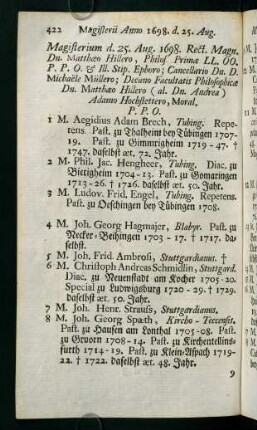 422 Magisterii Anno 1698. d. 25. Aug.
Magisterium d. 25. Aug. 1698. Rect. Magn.
Dn. Matthæo Hillero, Philos. Primæ LL. OO.
P. P. O. & Ill. Stip. Ephoro; Cancellario Dn. D.
Michaële Müllero; Decano Facultatis Philosophicæ
Dn. Matthæo Hillero (al. Dn. Andrea)
Adamo Hochstettero, Moral.
P. P. O.
1 M. Aegidius Adam Brech, Tubing. Repe-
tens. Past. zu Thalheim bey Tübingen 1707-
19. Past. zu Gimmrigheim 1719-47. †
1747. daselbst æt. 72. Jahr.
2 M. Phil. Jac. Hengheer, Tubing. Diac. zu
Bietigheim 1704-13. Past. zu Gomaringen
1713-26. † 1726. daselbst æt. 50. Jahr.
3 M. Ludov. Frid. Engel, Tubing. Repetens.
Past. zu Oeschingen bey Tübingen 1708.
4 M. Joh. Georg Hagmajer, Blabyr. Past. zu
Necker-Beihingen 1703-17. † 1717. da-
selbst.
5 M. Joh. Frid. Ambrosi, Stuttgardianus. †
6 M. Christoph Andreas Schmidlin, Stuttgard.
Diac. zu Neuenstadt am Kocher 1705-20.
Special zu Ludwigsburg 1720-29. † 1729.
daselbst æt. 50. Jahr.
7 M. Joh. Henr. Strauss, Stuttgardianus.
8 M. Joh. Georg Spæth, Kircho-Teccensis.
Past. zu Hausen am Lonthal 1705-08. Past.
zu Gruorn 1708-14. Past. zu Kirchentellins-
furth 1714-19. Past. zu Klein-Aspach 1719-
22. † 1722. daselbst æt. 48. Jahr.
9